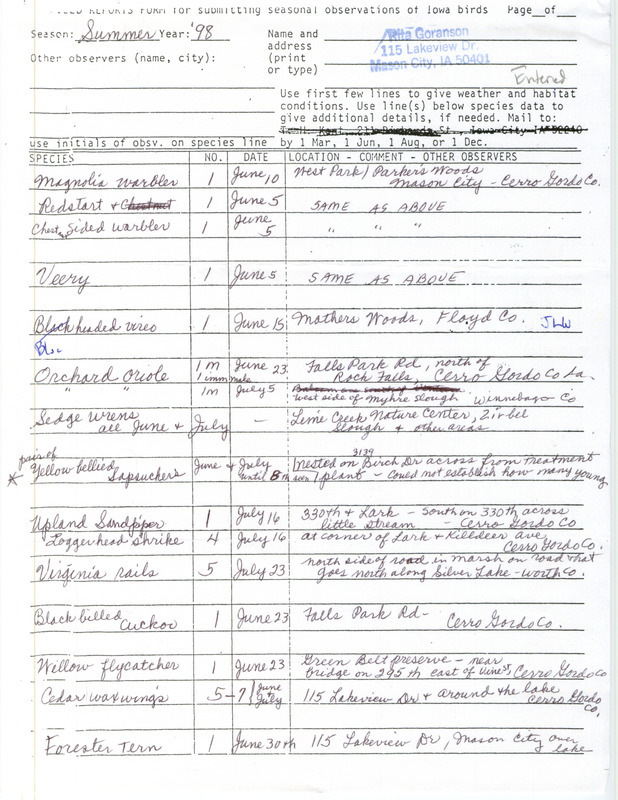 REPORTS FORM for submitting seasonal observations of Iowa birds Page_of___
Season: Summer Year: '98
Name and address (print or type)
Rita Goranson
115 Lakeview Dr.
Mason City, IA 50401
Other observers (name, city):
Entered
Use first few lines to give weather and habitat
conditions. Use line(s) below species data to
give additional details, if needed. Mail to:
use initials of obsv. on species line by 1 Mar, 1 Jun, 1 Aug, or 1 Dec.
SPECIES NO. DATE LOCATION - COMMENT - OTHER OBSERVERS
Magnolia warbler 1 June 10 West Park / Parkers Woods
Mason City - Cerro Gordo Co.
Redstart & Chestnut 1 June 5 SAME AS ABOVE
Chest. Sided warbler 1 June 5 " " "
Veery 1 June 5 SAME AS ABOVE
Black headed vireo 1 June 15 Mathers Woods, Floyd Co. JLW
Blu
Orchard Oriole 1 m June 23 Falls Park Rd, north of
1 imm male Rock Falls, Cerro Gordo Co Ia.
" " 1m July 5
west side of Myhre slough Winnebago Co
Sedge wrens — Lime Creek Nature Center, Zirbel
all June & July Slough & other areas
3139
pair of
* Yellow bellied June & July nested on Birch Dr across from treatment
Sapsuckers until 8th plant - could not establish how many young
Upland Sandpiper 1 July 16 330th & Lark - South on 330th across
little stream - Cerro Gordo Co
Loggerhead Shrike 4 July 16 at corner of Lark & Killdeer ave
Cerro Gordo Co.
Virginia rails 5 July 23 north side of road in marsh on road that
goes north along Silver Lake - Worth Co.
Black billed Cuckoo 1 June 23 Falls Park Rd - Cerro Gordo Co.
Willow flycatcher 1 June 23 Green Belt preserve - near
bridge on 295th east of Vine St, Cerro Gordo Co
Cedar waxwings 5-7 June & July 115 Lakeview Dr & around the lake
Cerro Gordo Co.
Forester Tern 1 June 30th 115 Lakeview Dr, Mason City over
lake